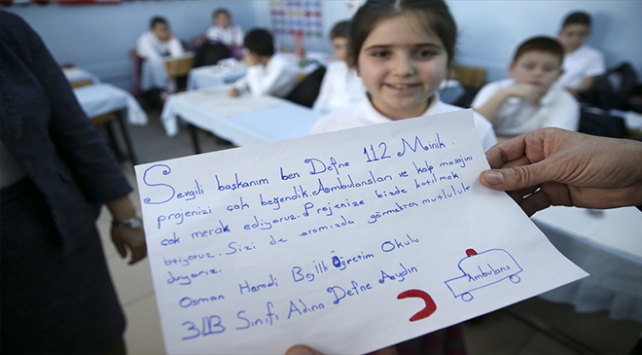 Sevgili başkanım ben Defne 112 Mainik
projenizi çok beğendik. Ambulansları ve kalp masajını
çok merak ediyoruz. Projenize bizde katılmak
istiyoruz. Sizi de aramızda görmekten mutluluk
duyarız.
Osman Hamdi Bey İlk Öğretim Okulu
3/B Sınıfı Adına Defne Aydın
Ambulans